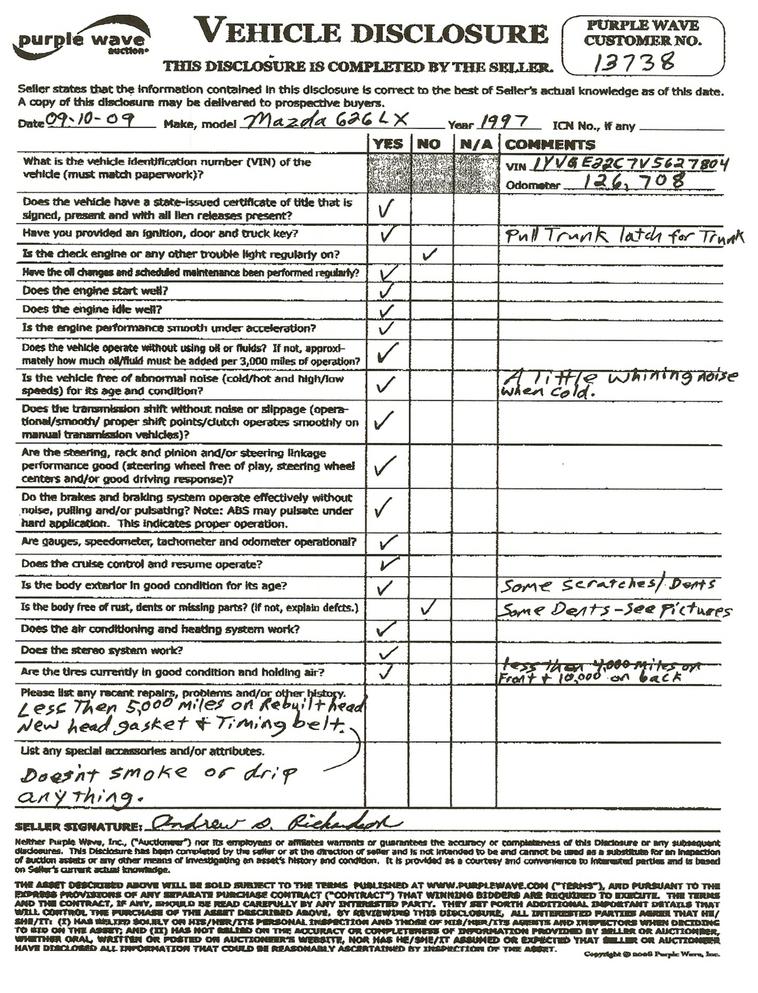 purple wave
auction
VEHICLE DISCLOSURE
THIS DISCLOSURE IS COMPLETED BY THE SELLER.
PURPLE WAVE
CUSTOMER NO.
13738
Seller states that the information contained in this disclosure is correct to the best of Seller's actual knowledge as of this date.
A copy of this disclosure may be delivered to prospective buyers.
Date 09-10-09 Make, model Mazda 626 LX Year 1997 ICN No., if any
YES NO N/A COMMENTS
What is the vehicle identification number (VIN) of the
vehicle (must match paperwork)?
VIN 1YVGE22C7V5627804
Odometer 126,708
Does the vehicle have a state-issued certificate of title that is
signed, present and with all lien releases present? ✓
Have you provided an ignition, door and truck key? ✓ Pull Trunk latch for Trunk
Is the check engine or any other trouble light regularly on? ✓
Have the oil changes and scheduled maintenance been performed regularly? ✓
Does the engine start well? ✓
Does the engine idle well? ✓
Is the engine performance smooth under acceleration? ✓
Does the vehicle operate without using oil or fluids? If not, approxi-
mately how much oil/fluid must be added per 3,000 miles of operation? ✓
Is the vehicle free of abnormal noise (cold/hot and high/low
speeds) for its age and condition? ✓
A little whining noise
when cold.
Does the transmission shift without noise or slippage (opera-
tional/smooth/ proper shift points/clutch operates smoothly on
manual transmission vehicles)? ✓
Are the steering, rack and pinion and/or steering linkage
performance good (steering wheel free of play, steering wheel
centers and/or good driving response)? ✓
Do the brakes and braking system operate effectively without
noise, pulling and/or pulsating? Note: ABS may pulsate under
hard application. This indicates proper operation. ✓
Are gauges, speedometer, tachometer and odometer operational? ✓
Does the cruise control and resume operate? ✓
Is the body exterior in good condition for its age? ✓ Some scratches/Dents
Is the body free of rust, dents or missing parts? (if not, explain defcts.) ✓ Some Dents-See Pictures
Does the air conditioning and heating system work? ✓
Does the stereo system work? ✓
Are the tires currently in good condition and holding air? ✓
Less then 4,000 miles on
front + 10,000 on back
Please list any recent repairs, problems and/or other history.
Less Then 5,000 miles on Rebuilt head
New head gasket & Timing belt.
List any special accessories and/or attributes.
Doesn't smoke or drip
anything.
SELLER SIGNATURE: Andrew D. Richardson
Neither Purple Wave, Inc., ("Auctioneer") nor its employees or affiliates warrants or guarantees the accuracy or completeness of this Disclosure or any subsequent
disclosures. This Disclosure has been completed by the seller or at the direction of seller and is not intended to be and cannot be used as a substitute for an inspection
of auction assets or any other means of investigating an asset's history and condition. It is provided as a courtesy and convenience to interested parties and is based
on Seller's current actual knowledge.
THE ASSET DESCRIBED ABOVE WILL BE SOLD SUBJECT TO THE TERMS PUBLISHED AT WWW.PURPLEWAVE.COM ("TERMS"), AND PURSUANT TO THE
EXPRESS PROVISIONS OF ANY SEPARATE PURCHASE CONTRACT ("CONTRACT") THAT WINNING BIDDERS ARE REQUIRED TO EXECUTE. THE TERMS
AND THE CONTRACT, IF ANY, SHOULD BE READ CAREFULLY BY ANY INTERESTED PARTY. THEY SET FORTH ADDITIONAL IMPORTANT DETAILS THAT
WILL CONTROL THE PURCHASE OF THE ASSET DESCRIBED ABOVE. BY REVIEWING THIS DISCLOSURE, ALL INTERESTED PARTIES AGREE THAT HE/
SHE/IT: (I) HAS RELIED SOLELY ON HIS/HER/ITS PERSONAL INSPECTION AND THOSE OF HIS/HER/ITS AGENTS AND INSPECTORS WHEN DECIDING
TO BID ON THE ASSET; AND (II) HAS NOT RELIED ON THE ACCURACY OR COMPLETENESS OF INFORMATION PROVIDED BY SELLER OR AUCTIONEER,
WHETHER ORAL, WRITTEN OR POSTED ON AUCTIONEER'S WEBSITE, NOR HAS HE/SHE/IT ASSUMED OR EXPECTED THAT SELLER OR AUCTIONEER
HAVE DISCLOSED ALL INFORMATION THAT COULD BE REASONABLY ASCERTAINED BY INSPECTION OF THE ASSET.
Copyright © 2008 Purple Wave, Inc.